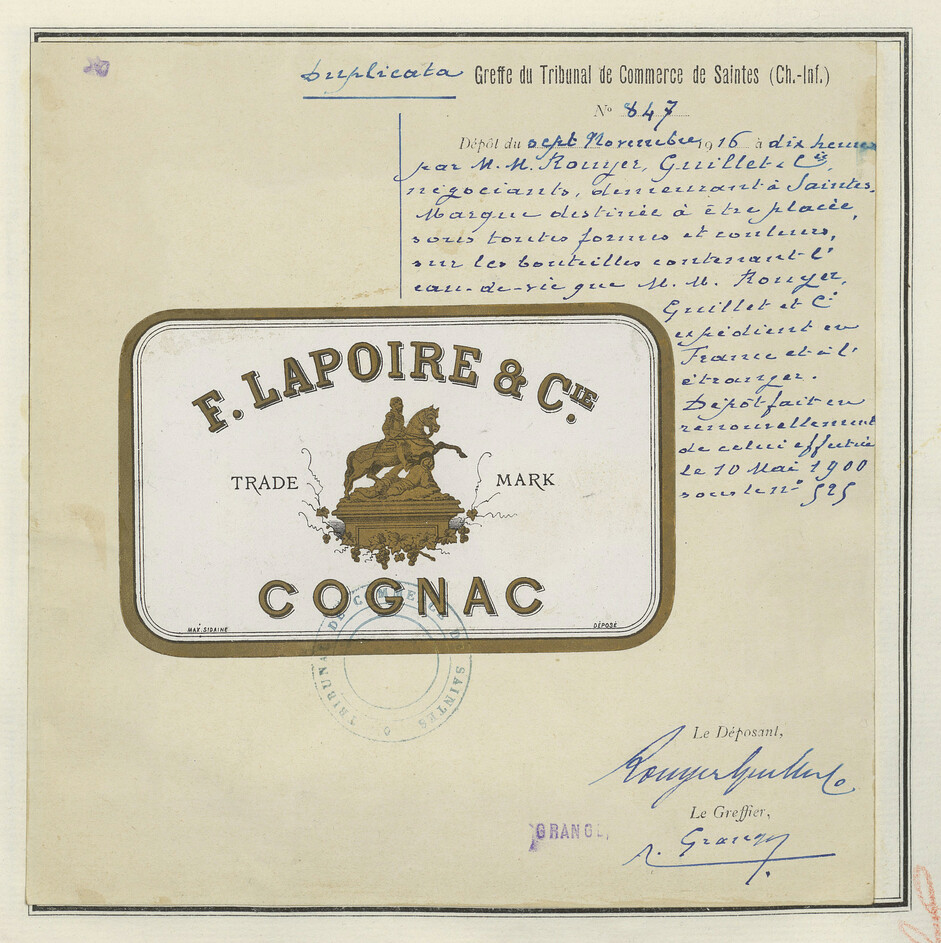 Duplicata Greffe du Tribunal de Commerce de Saintes (Ch.-Inf.)
N° 847
Dépôt du sept Novembre 1916 à dix heures
par M. M. Rouyer, Guillet & Cie,
négociants, demeurant à Saintes.
Marque destinée à être placée,
sous toutes formes et couleurs,
sur les bouteilles contenant l'
eau-de-vie que M. M. Rouyer,
Guillet et Cie
expédient en
France et à l'
étranger.
Dépôt fait en
renouvellement
de celui effectué
le 10 Mai 1900
sous le n° 525
F. LAPOIRE & CIE.
TRADE MARK
COGNAC
MAX. SIDAINE
DÉPOSÉ
TRIBUNAL DE COMMERCE DE SAINTES
Le Déposant,
Rouyer Guillet & Co
Le Greffier,
GRANGE,